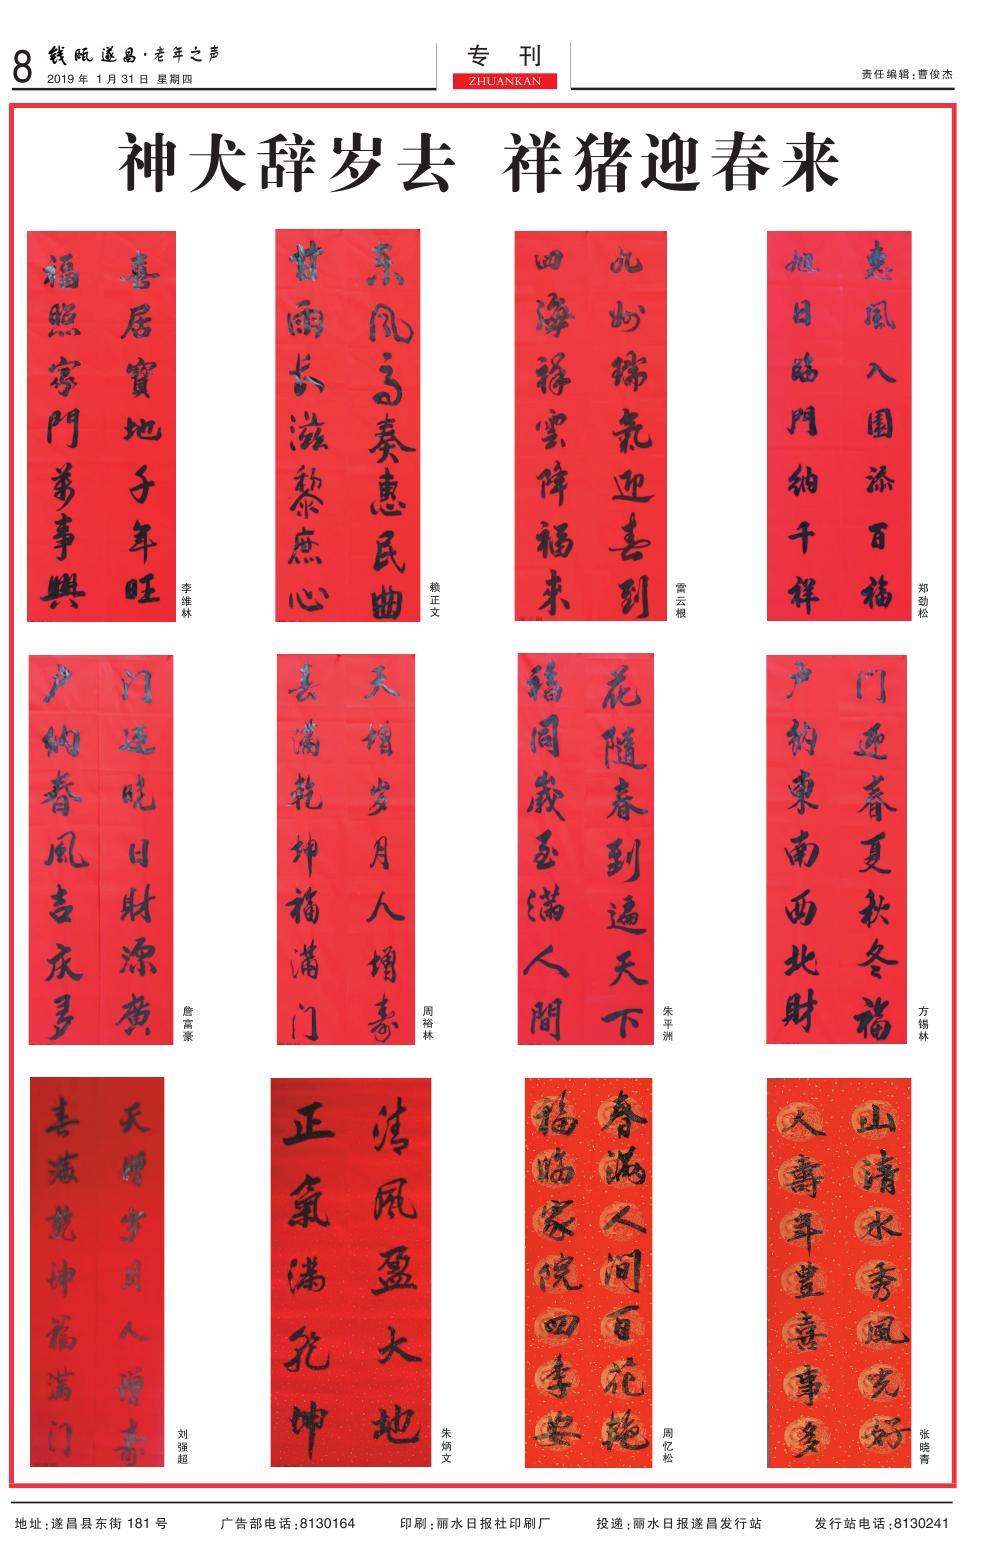 8
钱瓯遂昌·老年之声
2019年 1月31日 星期四
专 刊
ZHUANKAN
责任编辑:曹俊杰
神犬辞岁去 祥猪迎春来
喜居寶地千年旺
福照家門萬事興
李维林
东风高奏惠民曲
甘雨长滋黎庶心
赖正文
九州瑞氣迎春到
四海祥雲降福來
雷云根
惠風入園添百福
旭日臨門納千祥
郑劲松
门迎晓日財源廣
户納春風吉庆多
詹富豪
天增岁月人增寿
春满乾坤福满门
周裕林
花隨春到遍天下
福同歲至满人間
朱平洲
门迎春夏秋冬福
户纳東南西北財
方锡林
天增岁月人增寿
春满乾坤福满门
刘强超
清風盈大地
正氣满乾坤
朱炳文
春满人间百花艳
福临家院四季安
周忆松
山清水秀風光好
人壽年豊喜事多
张晓青
地址:遂昌县东街181号 广告部电话:8130164 印刷:丽水日报社印刷厂 投递:丽水日报遂昌发行站 发行站电话:8130241